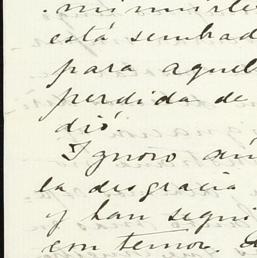 está sembrad
para aquel
perdida de
dió.
Ignoro aún
la desgracia
y han segui
con temor.